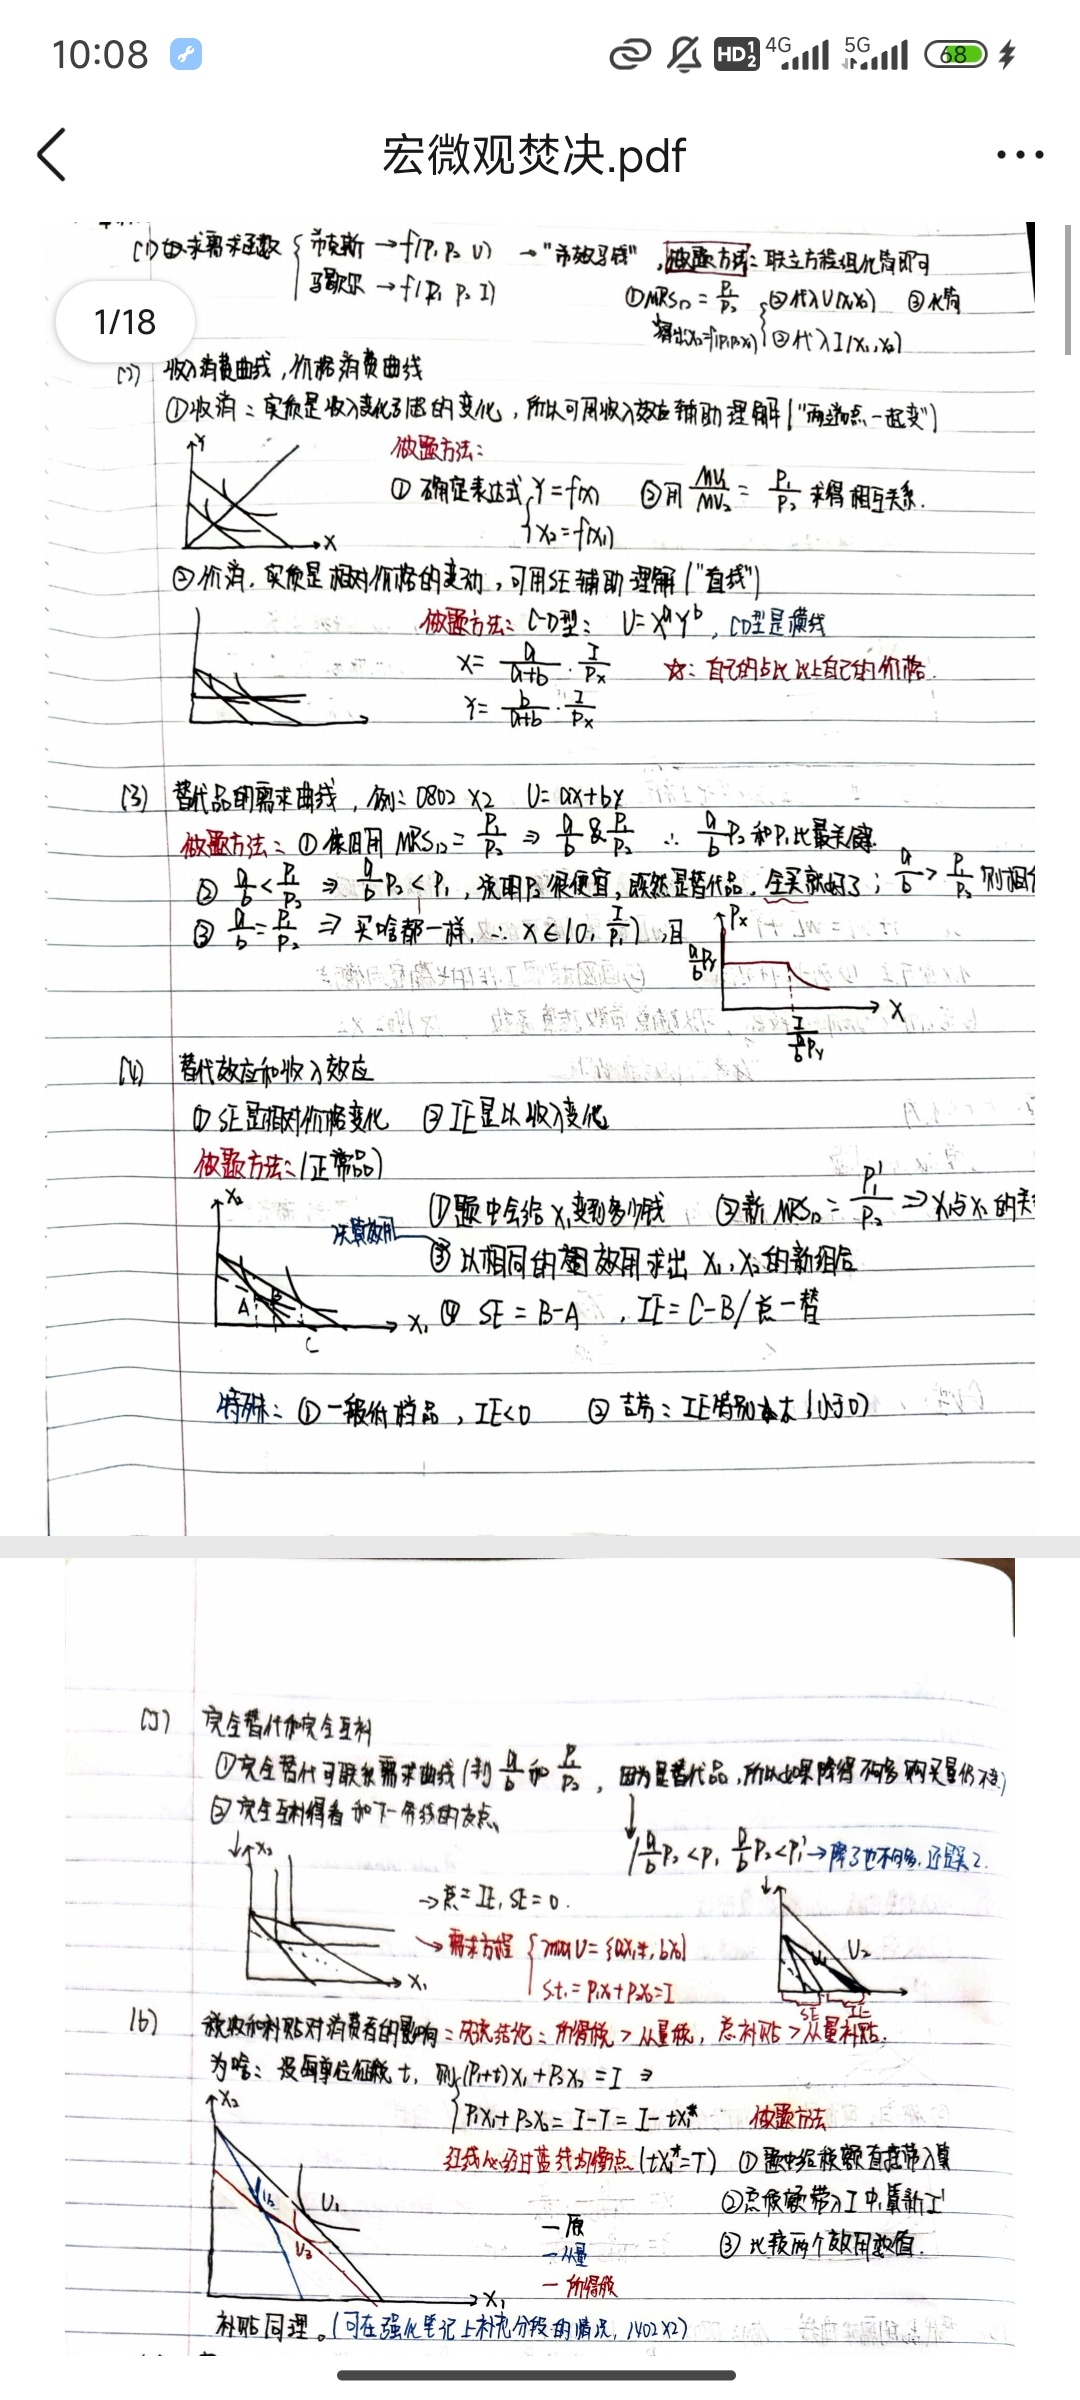 10:08
HD 1 2 4G 5G 68
宏微观焚决.pdf
1/18
(1) 求需求函数 { 希克斯 → f(P₁ P₂ U) → "希效马钱", 做题方法: 联立方程组化简即可
马歇尔 → f(P₁ P₂ I) ① MRS₁₂ = P₁/P₂ { ② 代入U(X₁X₂) ③ 化简
② 代入I(X₁,X₂)
(2) 收入消费曲线, 价格消费曲线
① 收消: 实质是收入变化引起的变化, 所以可用收入效应辅助理解 ("两端点一起变")
Y
X
做题方法:
① 确定表达式 { Y = f(x) ② 用 MU₁/MU₂ = P₁/P₂ 求得相互关系.
X₂ = f(X₁)
② 价消, 实质是相对价格的变动, 可用SE辅助理解 ("直线")
做题方法: C-D型: U = XᵃYᵇ, CD型是横线
X = a/(a+b) · I/Px ☆: 自己的占比比上自己的价格.
Y = b/(a+b) · I/Px
(3) 替代品的需求曲线, 例: 0802 X2 U = ax+by
做题方法: ① 依旧用 MRS₁₂ = P₁/P₂ ⇒ a/b & P₁/P₂ ∴ a/b P₂ 和 P₁ 比最关键.
② a/b < P₁/P₂ ⇒ a/b P₂ < P₁, 说明P₂很便宜, 既然是替代品, 全买就好了; a/b > P₁/P₂ 则相
③ a/b = P₁/P₂ ⇒ 买啥都一样, ∴ X ∈ (0, I/P₁), 且
Px
a/b Py
X
I / (a/b Py)
(4) 替代效应和收入效应
① SE是相对价格变化 ② IE是以收入变化
做题方法: (正常品)
X₂
A
B
C
X₁
决算效用
① 题中会给X₁变到多少钱 ② 新MRS₁₂ = P₁'/P₂ ⇒ X₁与X₂的关
③ 以相同的效用求出 X₁, X₂的新组合
④ SE = B-A , IE = C-B / 总-替
特殊: ① 一般低档品, IE<0 ② 吉芬: IE特别大 (小于0)
(5) 完全替代和完全互补
① 完全替代可联系需求曲线 (判 a/b 和 P₁/P₂, 因为是替代品, 所以如果降得不够多购买量仍不变)
② 完全互补得看和下一条线的交点.
( a/b P₂ < P₁ a/b P₂ < P₁' → 降了也不够多, 还是买2.
X₂
→ 总 = IE, SE = 0.
→ 需求方程 { max U = {aX₁, bX₂}
s.t. = P₁X₁ + P₂X₂ = I
X₁
U₁
U₂
SE
IE
(6) 税收和补贴对消费者的影响: 先说结论: 所得税 > 从量税, 总补贴 > 从量补贴.
为啥: 设每单位征税 t, 则 { (P₁+t)X₁ + P₂X₂ = I ⇒
P₁X₁ + P₂X₂ = I-T = I-tX₁* 做题方法
红线必经过蓝线均衡点 (tX₁* = T) ① 题中给税额直接带入算
② 总税额带入I中, 算新I'
③ 比较两个效用数值.
X₂
U₁
U₂
U₃
X₁
— 原
— 从量
— 所得税
补贴同理. (可在强化笔记上补充分段的情况, 1402X2)